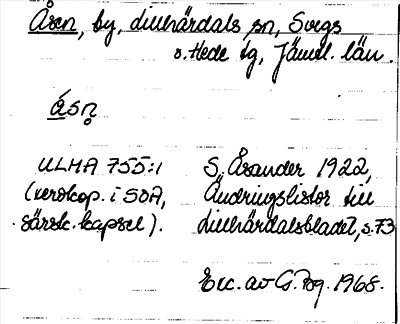 Åsen, by, Lillhärdals sn, Svegs
o. Hede tg, Jämtl. län.
åsn̥
ULMA 755:1
(xerokop. i SOA,
särsk. kapsel).
S. Åsander 1922,
Ändringslistor till
Lillhärdalsbladet, s. 73
Exc. av G. Pbg. 1968.